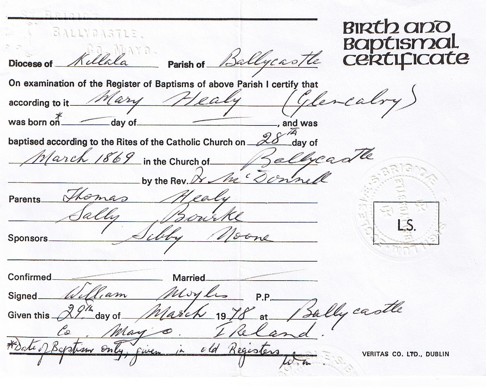 BALLYCASTLE,
CO. MAYO.
Birth and
Baptismal
Certificate
Diocese of Killala Parish of Ballycastle
On examination of the Register of Baptisms of above Parish I certify that
according to it Mary Healy (Glencalry)
was born on* — day of — , and was
baptised according to the Rites of the Catholic Church on 28th day of
March 1869 in the Church of Ballycastle
by the Rev. Fr McDonnell
Parents Thomas Healy
Sally Bourke
Sponsors Sibby Noone
L.S.
Confirmed — Married —
Signed William Moyles P.P.
Given this 29th day of March 1978 at Ballycastle
Co. Mayo. Ireland.
*Date of Baptism only, given in old Registers W.M.
VERITAS CO. LTD., DUBLIN